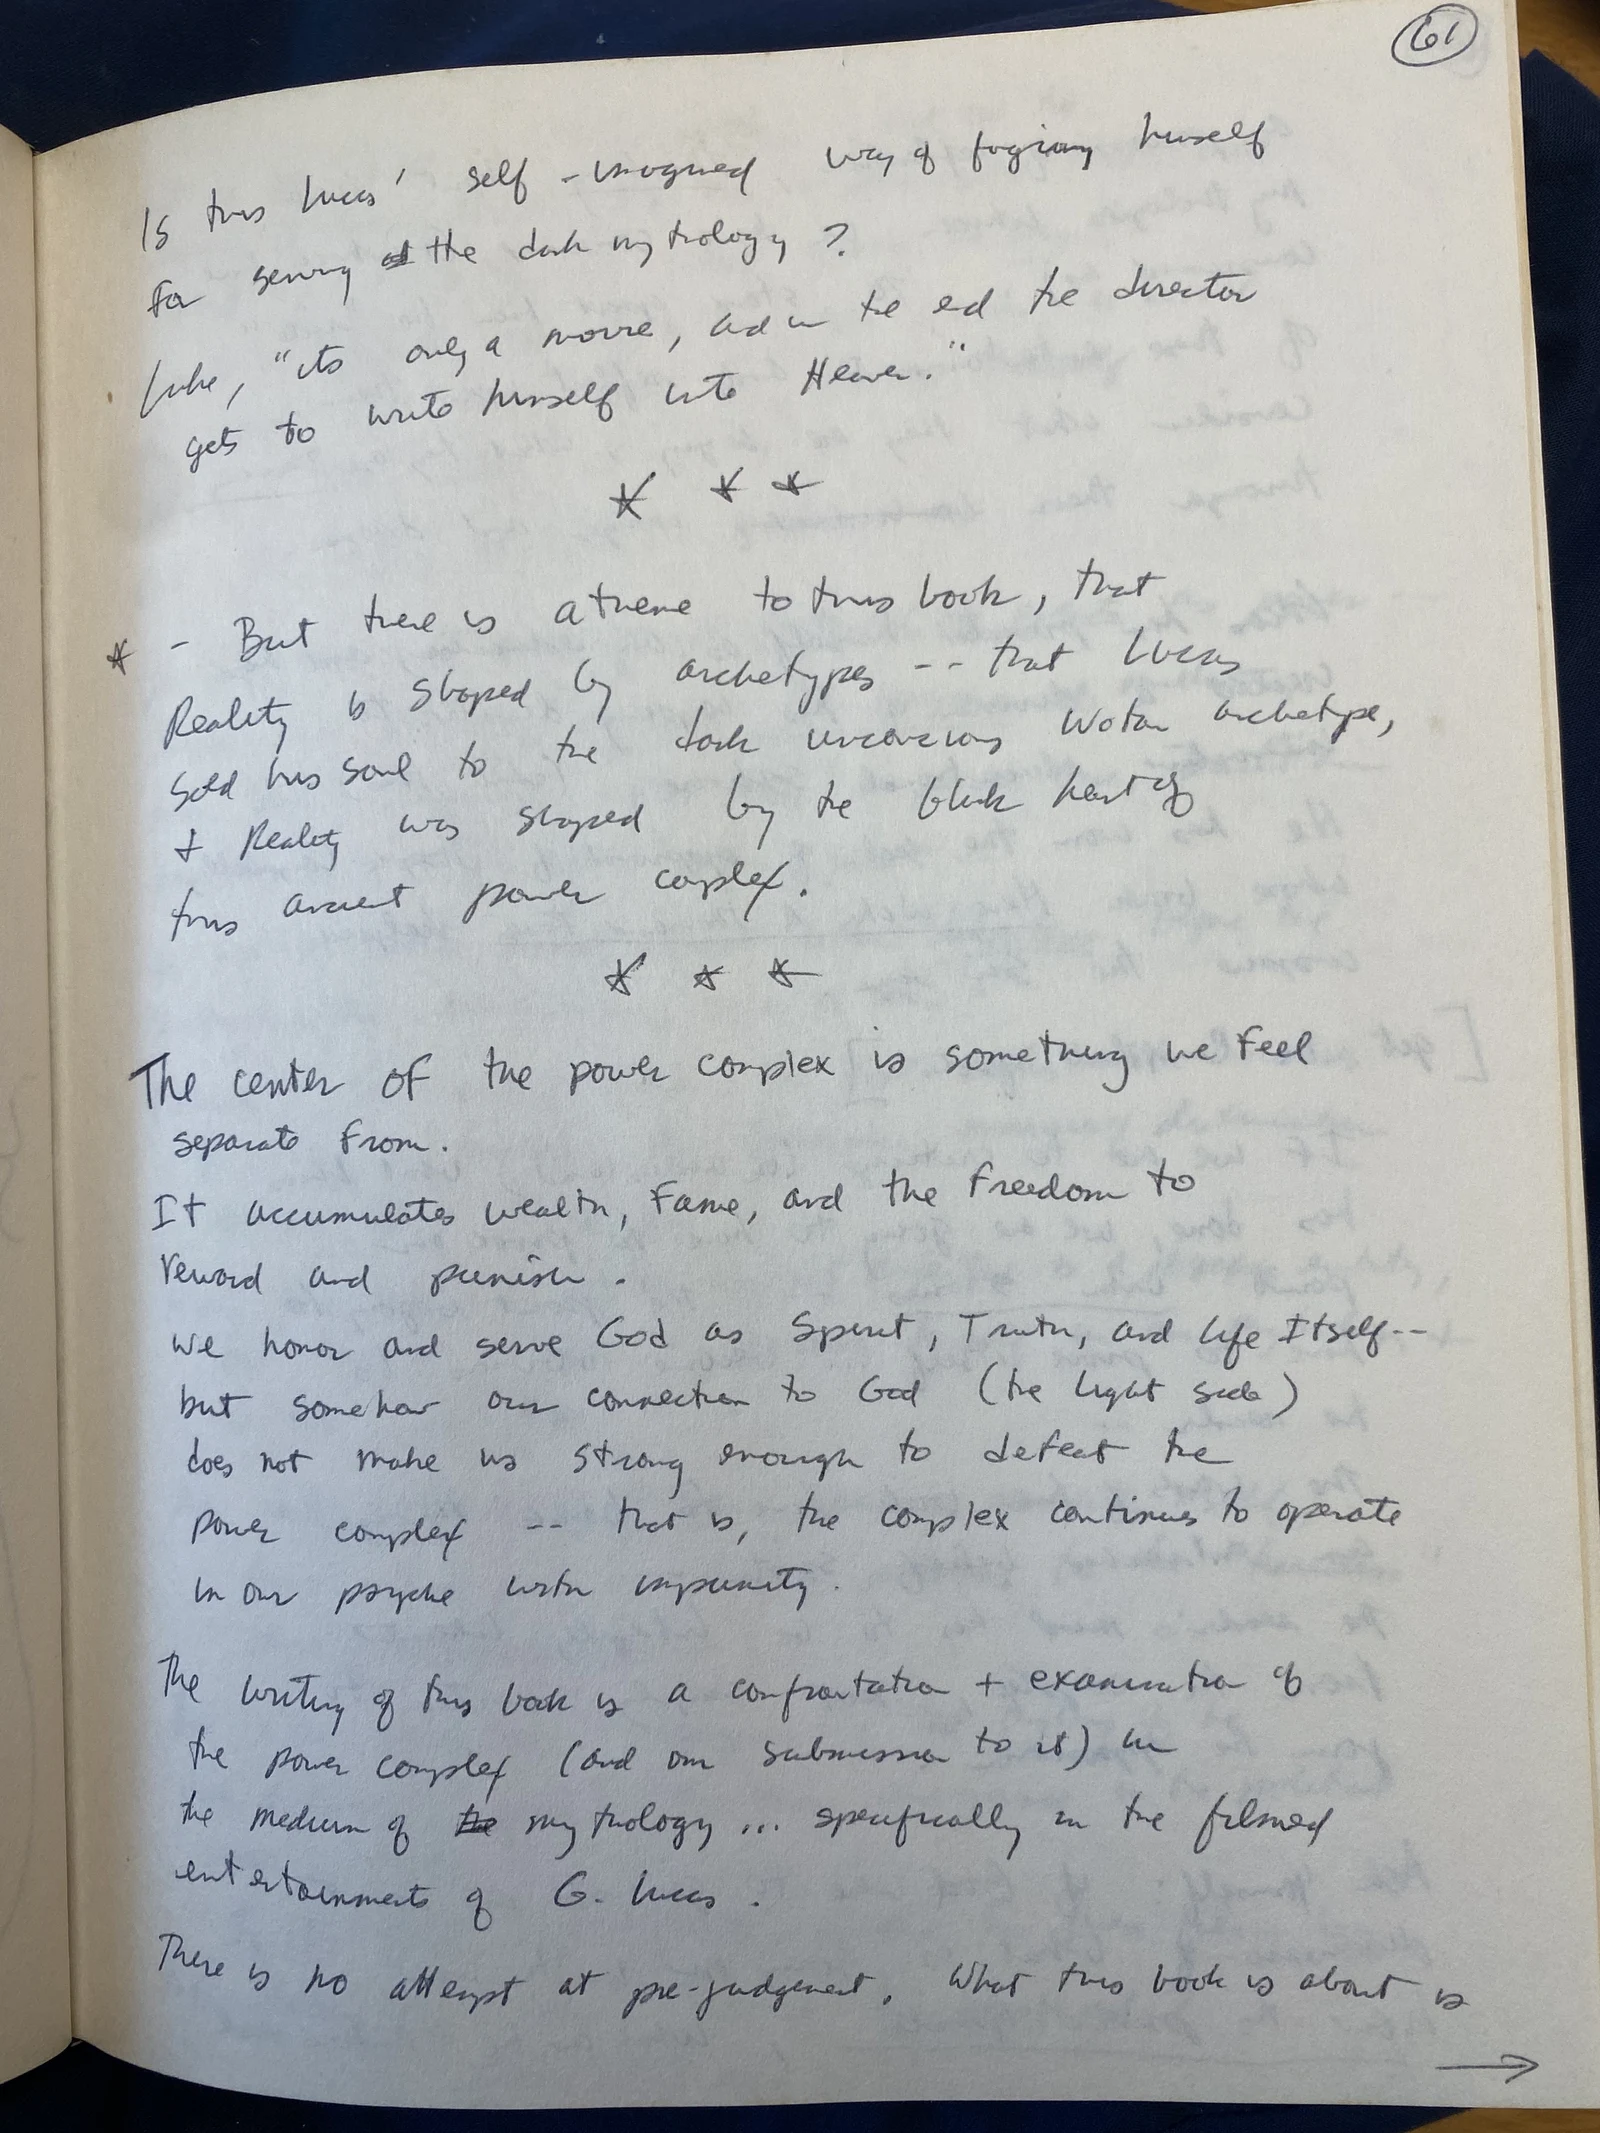 61
Is this Lucas' self-imagined way of forgiving himself
for serving the dark mythology?
Like, "its only a movie, and in the end the director
gets to write himself into Heaven."
* * *
* - But there is a theme to this book, that
Reality is shaped by archetypes -- that Lucas
sold his soul to the dark unconscious Wotan archetype,
+ Reality was shaped by the black heart of
this ancient power complex.
* * *
The center of the power complex is something we feel
separate from.
It accumulates wealth, fame, and the freedom to
reward and punish.
We honor and serve God as Spirit, Truth, and Life Itself--
but somehow our connection to God (the light side)
does not make us strong enough to defeat the
power complex -- that is, the complex continues to operate
in our psyche with impunity.
The writing of this book is a confrontation + examination of
the power complex (and our submission to it) in
the medium of the mythology... specifically in the filmed
entertainments of G. Lucas.
There is no attempt at pre-judgement. What this book is about is
→